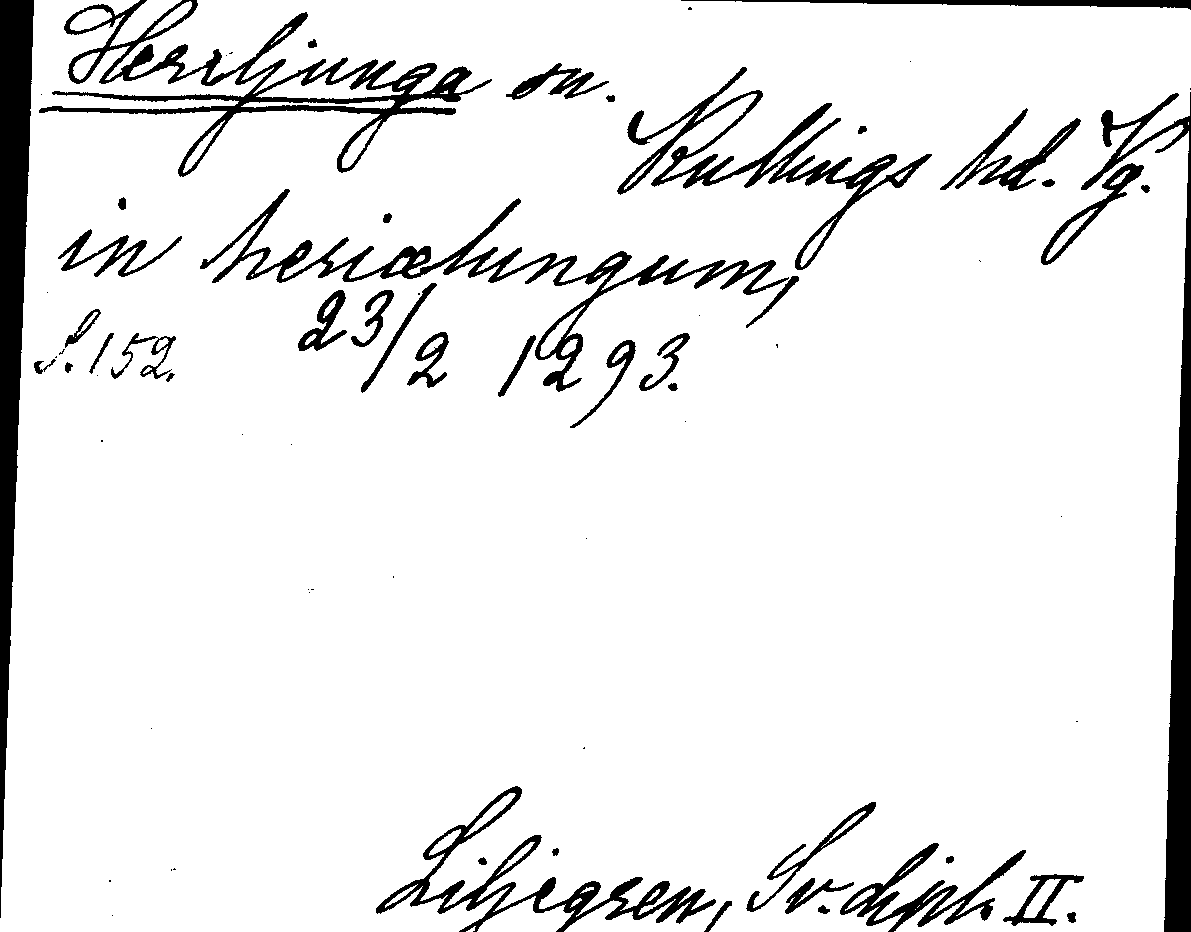 Herrljunga sn.
Kullings hd. Vg.
in heriælungum,
23/2 1293.
S. 152.
Liljegren, Sv. dipl. II.